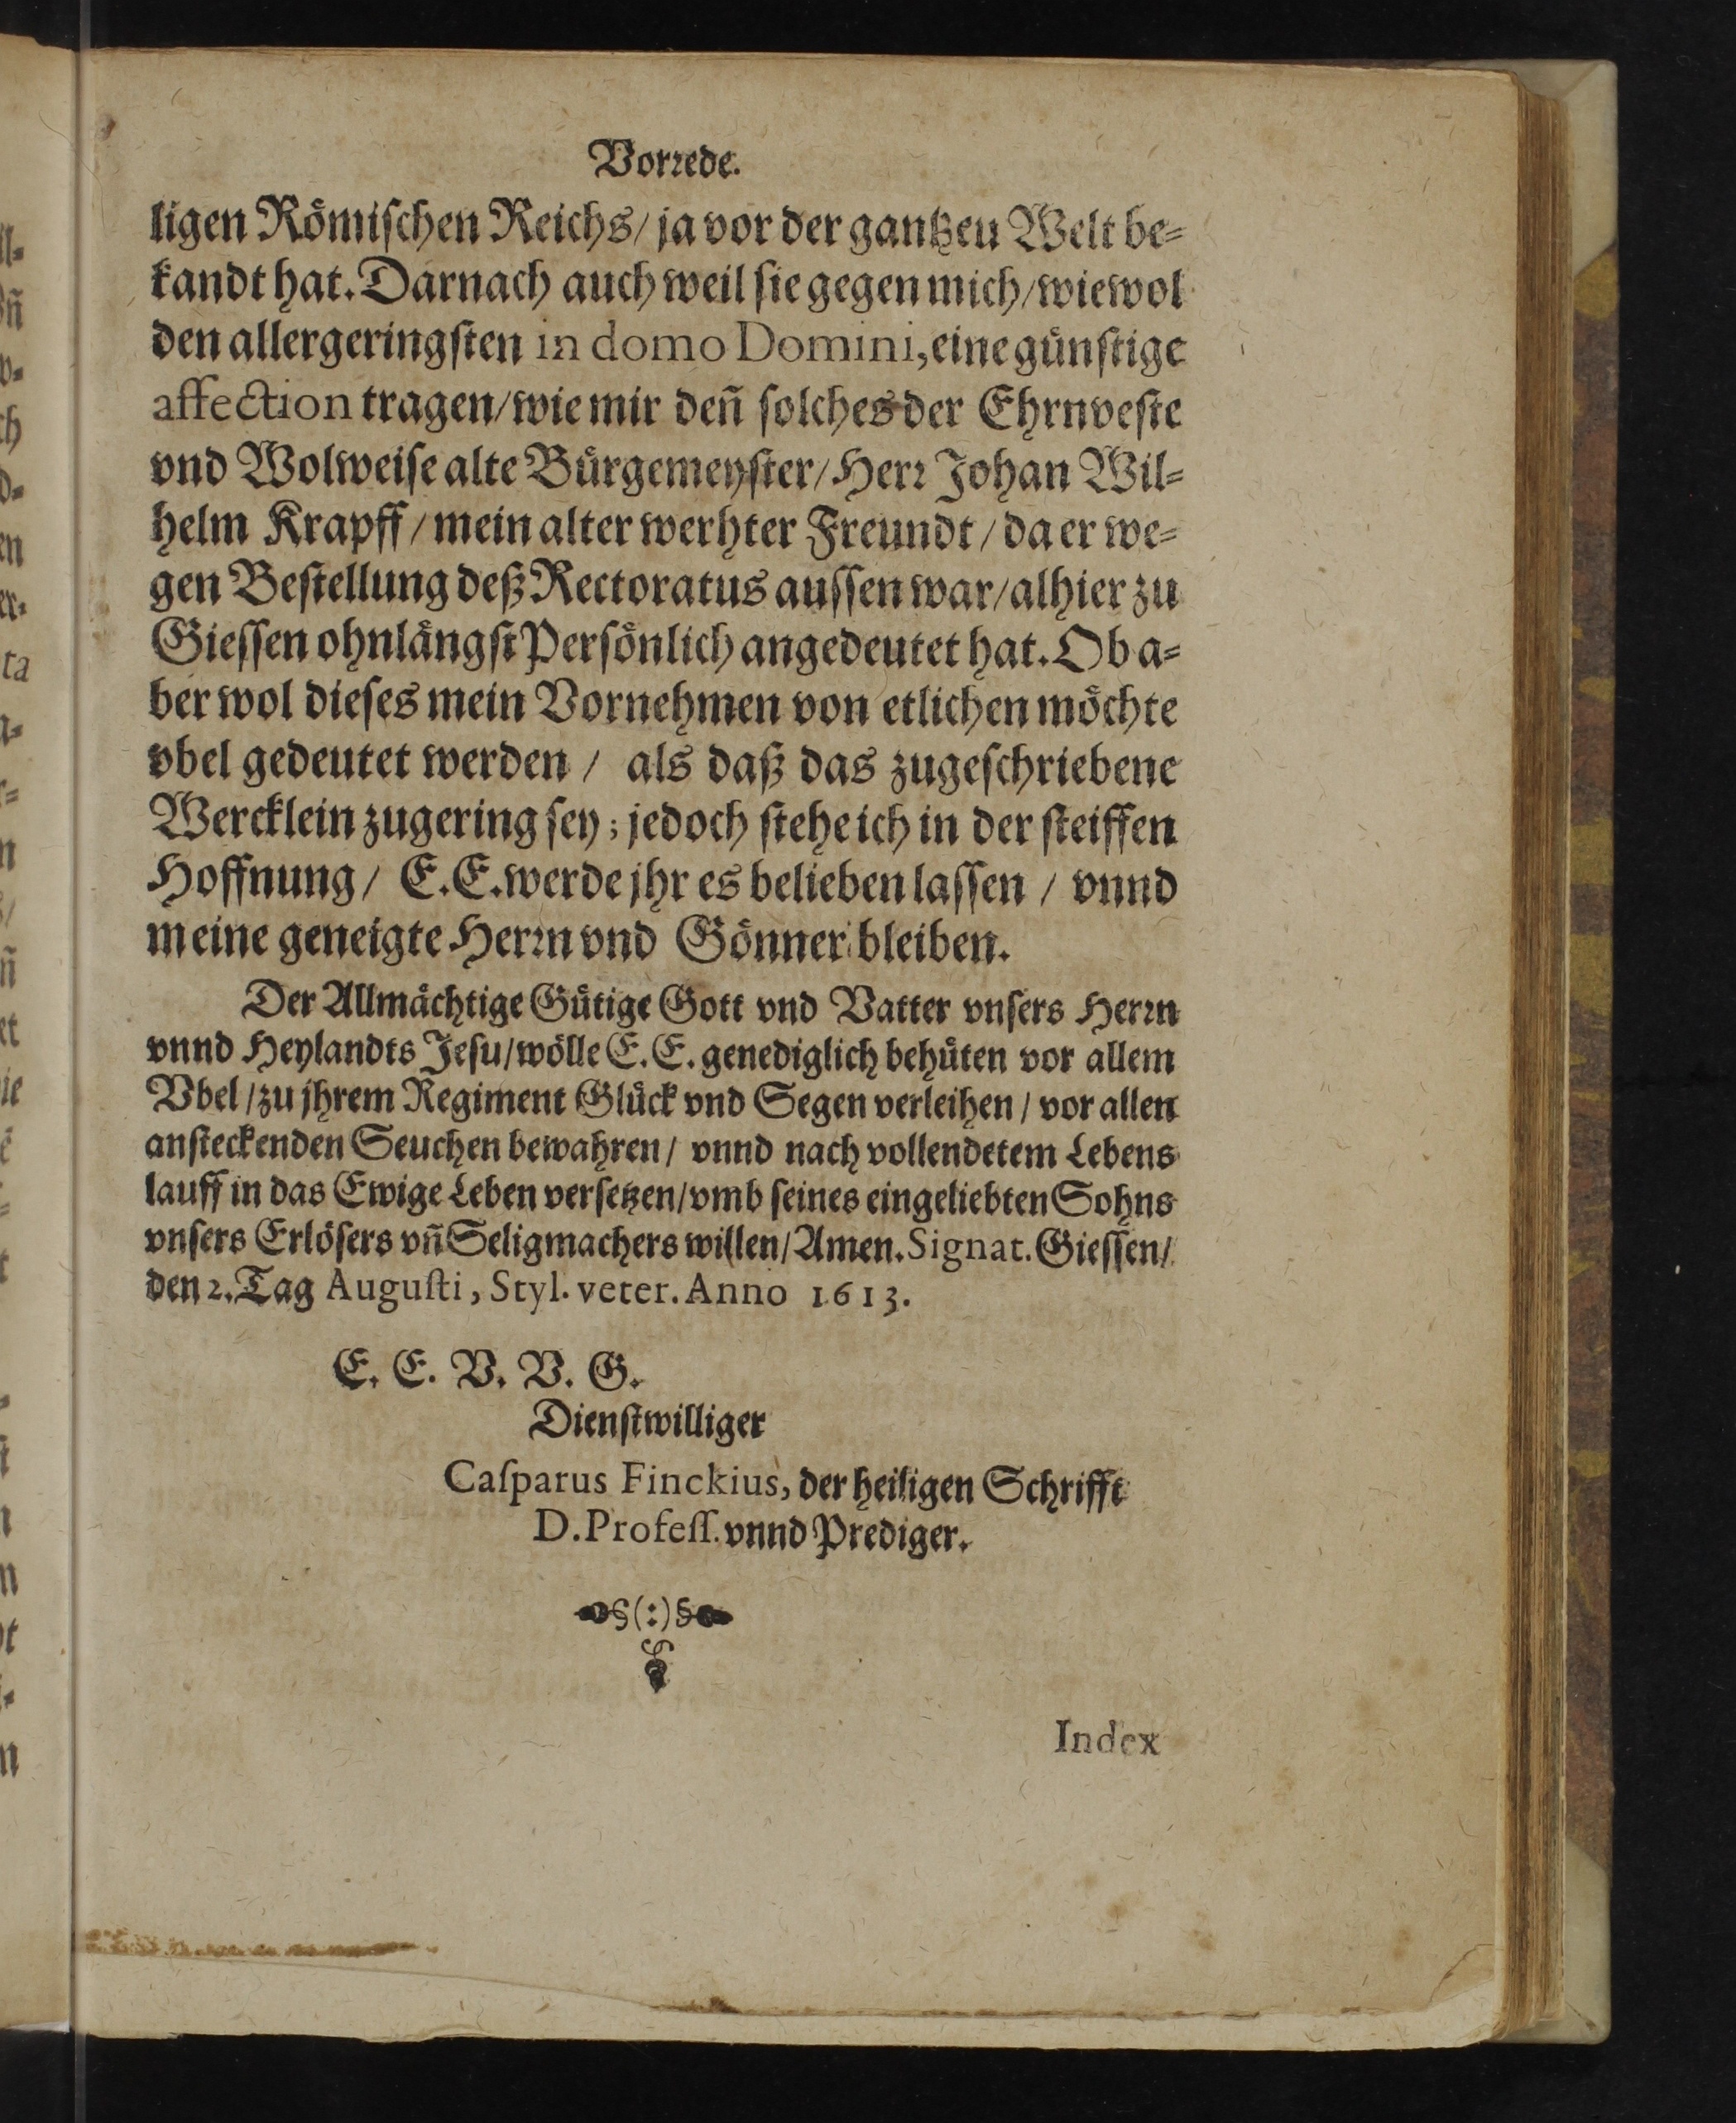 Vorꝛede.
ligen Römiſchen Reichs/ ja vor der gantzeu Welt be-
kandt hat. Darnach auch weil ſie gegen mich/ wiewol
den allergeringſten in domo Domini, eine günſtige
affection tragen/ wie mir deñ ſolches der Ehrnveſte
vnd Wolweiſe alte Bürgemeyſter/ Herꝛ Johan Wil-
helm Krapff/ mein alter werhter Freundt/ da er we-
gen Beſtellung deß Rectoratus auſſen war/ alhier zu
Gieſſen ohnlängſt Perſönlich angedeutet hat. Ob a-
ber wol dieſes mein Vornehmen von etlichen möchte
vbel gedeutet werden / als daß das zugeſchriebene
Wercklein zugering ſey; jedoch ſtehe ich in der ſteiffen
Hoffnung/ E. E. werde jhr es belieben laſſen / vnnd
meine geneigte Herꝛn vnd Gönner bleiben.
Der Allmächtige Gütige Gott vnd Vatter vnſers Herꝛn
vnnd Heylandts Jeſu/ wölle E. E. genediglich behüten vor allem
Vbel/ zu jhrem Regiment Glück vnd Segen verleihen/ vor allen
anſteckenden Seuchen bewahren/ vnnd nach vollendetem Lebens
lauff in das Ewige Leben verſetzen/ vmb ſeines eingeliebten Sohns
vnſers Erlöſers vñ Seligmachers willen/ Amen. Signat. Gieſſen/
den 2. Tag Auguſti, Styl. veter. Anno 1613.
E. E. V. V. G.
Dienſtwilliger
Caſparus Finckius, der heiligen Schrifft
D. Profeſſ. vnnd Prediger.
§(:)§
Index